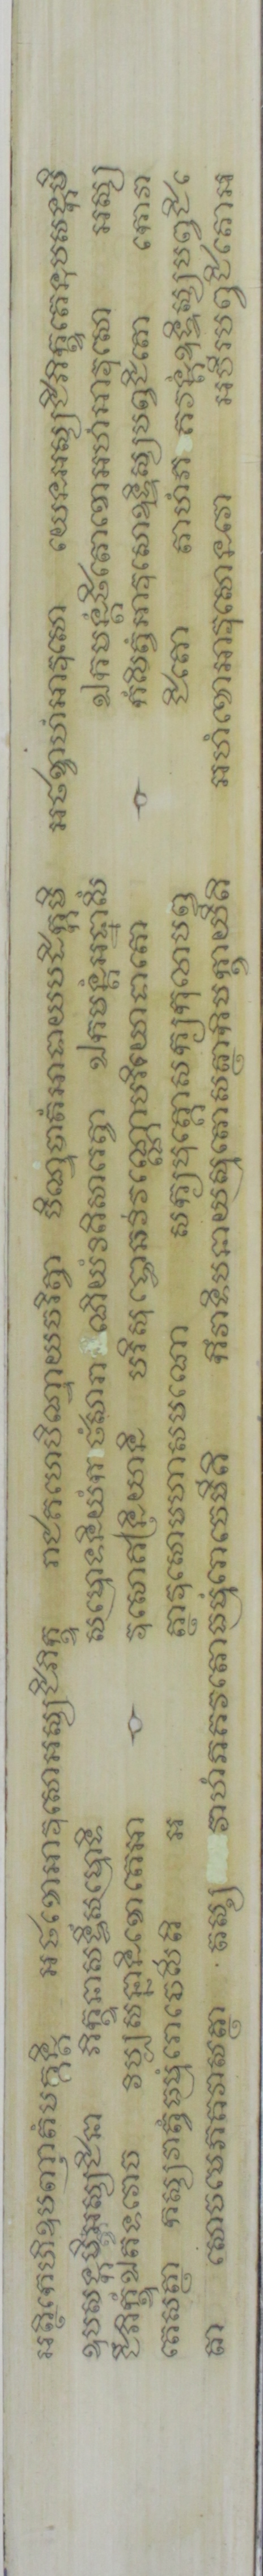 អត្ថិកេហិឧបញ្ញាតំបក្កន្តិ អថខោអាវុសោអស្សជិភិក្ខុ រាជគហេបិណ្ឌាយចរិត្វា បិណ្ឌបាតំអាទាយបដិក្កមិ អថខ្វាហំអាវុសោ យេនអស្សជិភិក្ខុតេនុបសង្កមិ
ឧបសង្កមិត្វាអស្សជិនា ភិក្ខុនាសទ្ធឹសម្មោទិ សម្មោទនិយំក ថំសារា ណិយំវិតិសារេត្វា ឯកមន្តំអដ្ឋាសិំ ឯកមន្តំឋិតោខោអហំអាវុសោ អស្ស
ជិំភិក្ខុំឯតទវោច វិប្បសន្នានិខោតេអា វុសោឥន្ទ្រិយានិ បរិសុទ្ធោឆវិវណ្ណោបរិយោទាតោ កំសិត្វំអាវុសោឧទ្ទិស្សបព្វជិតោ កោវា
តេសត្ថា កស្សវាត្វំធម្មំរោចេសីតិ អ ត្ថាវុសោមហាសមណោ សក្យបុត្តោសក្យកុលាបព្វ ជិតោ តាហំភ គវន្តំឧទ្ទិស្សបព្វជិ
តោ សោចមេភគវាសត្ថា តស្ស វាហំភគវតោធម្មំរោចេមីតិ កឹវាទិបនាយស្មតោសត្ថាកិមក្ខាយីតិ អហំខោអាវុសោនវោ អចិរបព្វជិតោអ